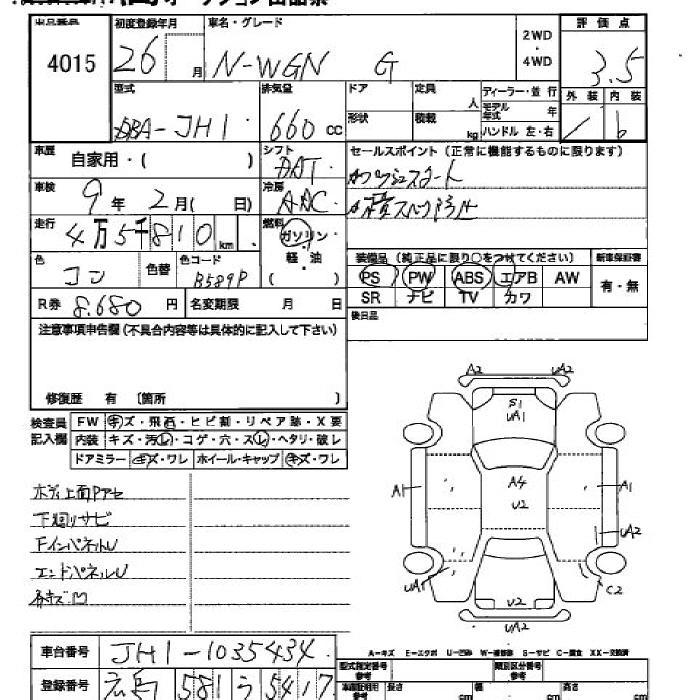 出品番号 初度登録年月 車名・グレード 2WD ・ 4WD 評価点
4015 26 月 N-WGN G 3.5
型式 排気量 ドア 定員 人 ディーラー・並行 外装 内装
DBA-JH1 660 cc 形状 積載 kg モデル年式 年 ハンドル 左・右 b
車歴 自家用・( ) シフト DAT セールスポイント(正常に機能するものに限ります)
車検 9年 2月( 日) 冷房 AAC
走行 4万5千810km 燃料 ガソリン・軽・油 ( )
装備品(純正品に限り○をつけてください) 新車保証書
色 コン 色替 色コード B589P PS PW ABS エアB AW 有・無
SR ナビ TV カワ
R券 8.680円 名変期限 月 日 後日品
注意事項申告欄(不具合内容等は具体的に記入して下さい)
修復歴 有 〔箇所 〕
検査員記入欄 FW キズ・飛石・ヒビ割・リペア跡・X要
内装 キズ・汚レ・コゲ・穴・スレ・ヘタリ・破レ
ドアミラー キズ・ワレ ホイール・キャップ キズ・ワレ
A2 UA2
S1
UA1
A1 A4 A1
U2 UA2
UA1 C2
U2
UA2
下廻リサビ
FインパネルU
エンドパネルU
A-キズ E-エクボ U-凹み W-補修跡 S-サビ C-腐食 XX-交換済
車台番号 JH1-1035434
登録番号 広島 581 う 5417
型式指定番号 参考 類別区分番号 参考
車庫証明用 参考 長さ cm 幅 cm 高さ cm